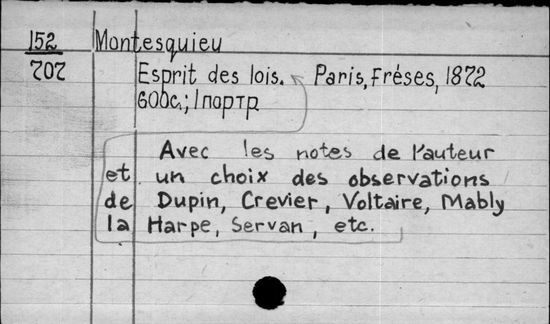 152 Montesquieu
707 Esprit des lois. Paris, Fréses, 1872
600c.; 1 портр
Avec les notes de l'auteur
et un choix des observations
de Dupin, Crevier, Voltaire, Mably
la Harpe, Servan, etc.